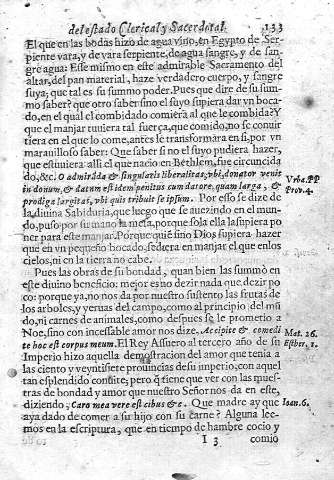 del estado Clerical, y Sacerdotal. 133
El que en las bodas hizo de agua vino, en Egypto de Ser-
piente vara, y de vara serpiente, de agua sangre, y de san-
gre agua: Esse mismo en este admirable Sacramento del
altar, del pan material, haze verdadero cuerpo, y sangre
suya, que tal es su summo poder. Pues que dire de su sum-
mo saber? que otro saber sino el suyo supiera dar vn boca-
do, en el qual el combidado comiera al que le combida? Y
que el manjar tuuiera tal fuerça, que comido, no se conuir
tiera en el que lo come, antes le transformàra en si, por vn
marauilloso saber? Que saber si no el suyo pudiera hazer,
que estuuiera alli el que nacio en Bethlem, fue circuncida
do, &c. O admirãda & singularis liberalitas, vbi, donator venit
in donum, & datum est idem penitus cum datore, quam larga, &
Vrba. PP
prodiga largitas, vbi quis tribuit se ipsum. Por esso se dize de
Prov. 4.
la diuina Sabiduria, que luego que se auezindò en el mun-
do, puso por su mano la mesa, porque sola ella la supiera po
ner para este manjar. Porque quiẽ sino Dios supiera hazer
que en vn pequeño bocado, sediera en manjar el que enlos
cielos, ni en la tierra no cabe.
Pues las obras de su bondad, quan bien las summò en
este diuino beneficio: mejor es no dezir nada que dezir po
co: porque ya, no nos da por nuestro sustento las frutas de
los arboles, y yeruas del campo, como al principio del mũ
do, ni carnes de animales, como despues se le prometio a
Noe, sino con incessable amor nos dize. Accipite & comedi
Mat. 26.
te hoc est corpus meum. El Rey Assuero al tercero año de su
Esther. 1.
Imperio hizo aquella demostracion del amor que tenia a
las ciento y veynti siete prouincias de su imperio, con aquel
tan esplendido conuite; pero q̃ tiene que ver con las mues-
tras de bondad y amor que nuestro Señor nos da en este,
diziendo, Caro mea vere est cibus &c. Que madre ay que
Ioan. 6.
aya dado de comer a su hijo con su carne? Alguna lee-
mos en la escriptura, que en tiempo de hambre cocio y
I 3 comio